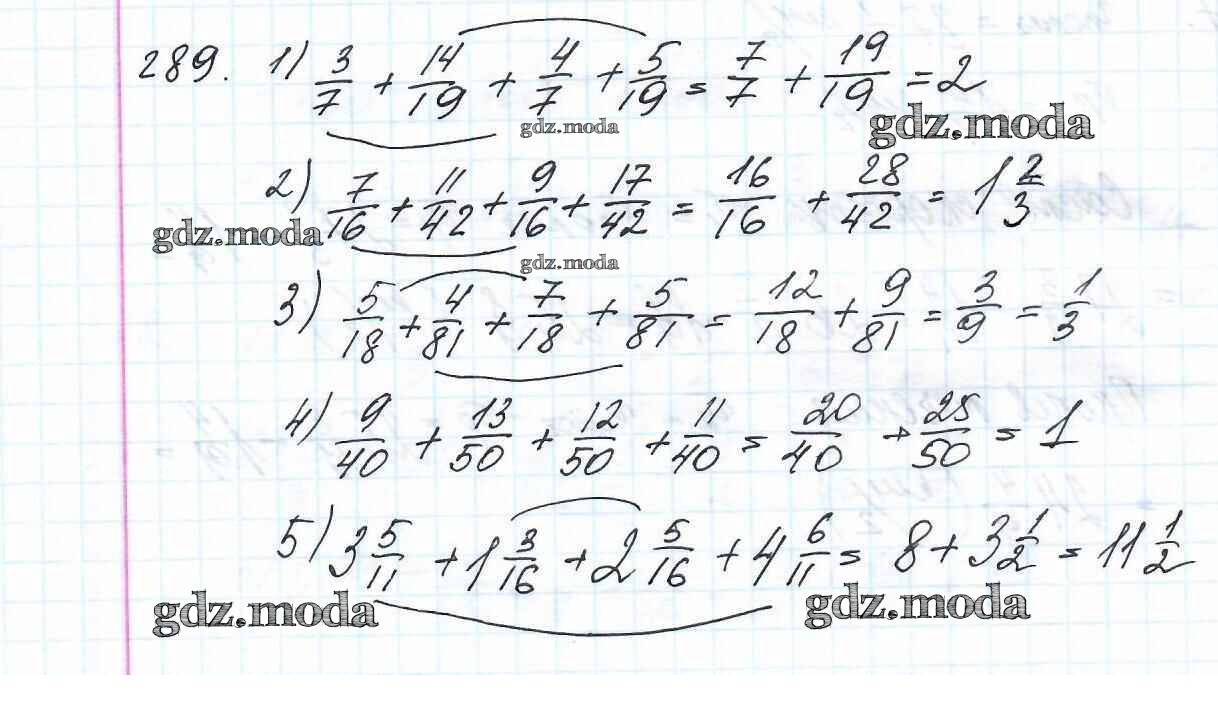 289. 1) 3/7 + 14/19 + 4/7 + 5/19 = 7/7 + 19/19 = 2
gdz.moda
gdz.moda
2) 7/16 + 11/42 + 9/16 + 17/42 = 16/16 + 28/42 = 1 2/3
gdz.moda
gdz.moda
3) 5/18 + 4/81 + 7/18 + 5/81 = 12/18 + 9/81 = 3/9 = 1/3
4) 9/40 + 13/50 + 12/50 + 11/40 = 20/40 + 25/50 = 1
5) 3 5/11 + 1 3/16 + 2 5/16 + 4 6/11 = 8 + 3 1/2 = 11 1/2
gdz.moda
gdz.moda